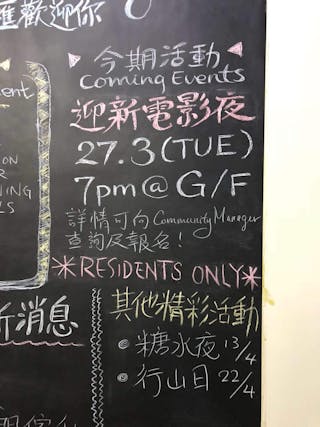 歡迎你
今期活動
Coming Events
迎新電影夜
27.3 (TUE)
7pm @ G/F
詳情可向 Community Manager
查詢及報名！
*RESIDENTS ONLY*
消息
其他精彩活動
糖水夜 13/4
行山日 22/4